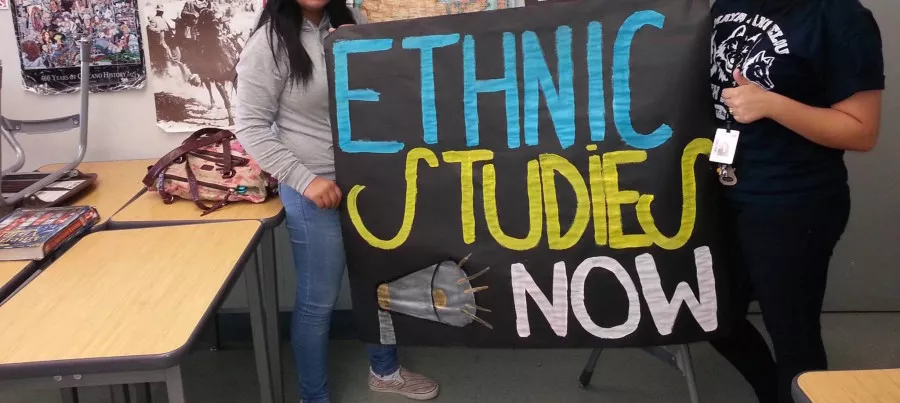 460 YEARS OF CHICANO HISTORY
ETHNIC
STUDIES
NOW